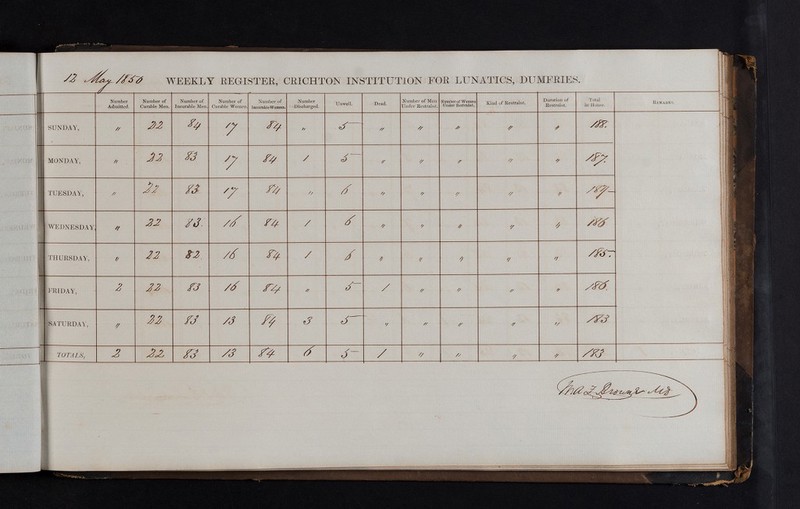 12 May 1850 WEEKLY REGISTER, CRICHTON INSTITUTION FOR LUNATICS, DUMFRIES.
Number Admitted. Number of Curable Men. Number of Incurable Men. Number of Curable Women. Number of Incurable Women. Number Discharged. Unwell. Dead. Number of Men Under Restraint. Number of Women Under Restraint. Kind of Restraint. Duration of Restraint. Total in House. REMARKS.
SUNDAY, " 22 84 17 84 " 5 " " " " " 188.
MONDAY, " 22 83 17 84 1 5 " " " " " 187.
TUESDAY, " 22 83 17 84 " 6 " " " " " 187
WEDNESDAY, " 22 83 16 84 1 6 " " " " " 186
THURSDAY, " 22 82 16 84 1 6 " " " " " 185.
FRIDAY, 2 22 83 16 84 " 5 1 " " " " 186
SATURDAY, " 22 83 13 84 3 5 " " " " " 183
TOTALS, 2 22 83 13 84 6 5 1 " " " " 183
W A F Browne MD